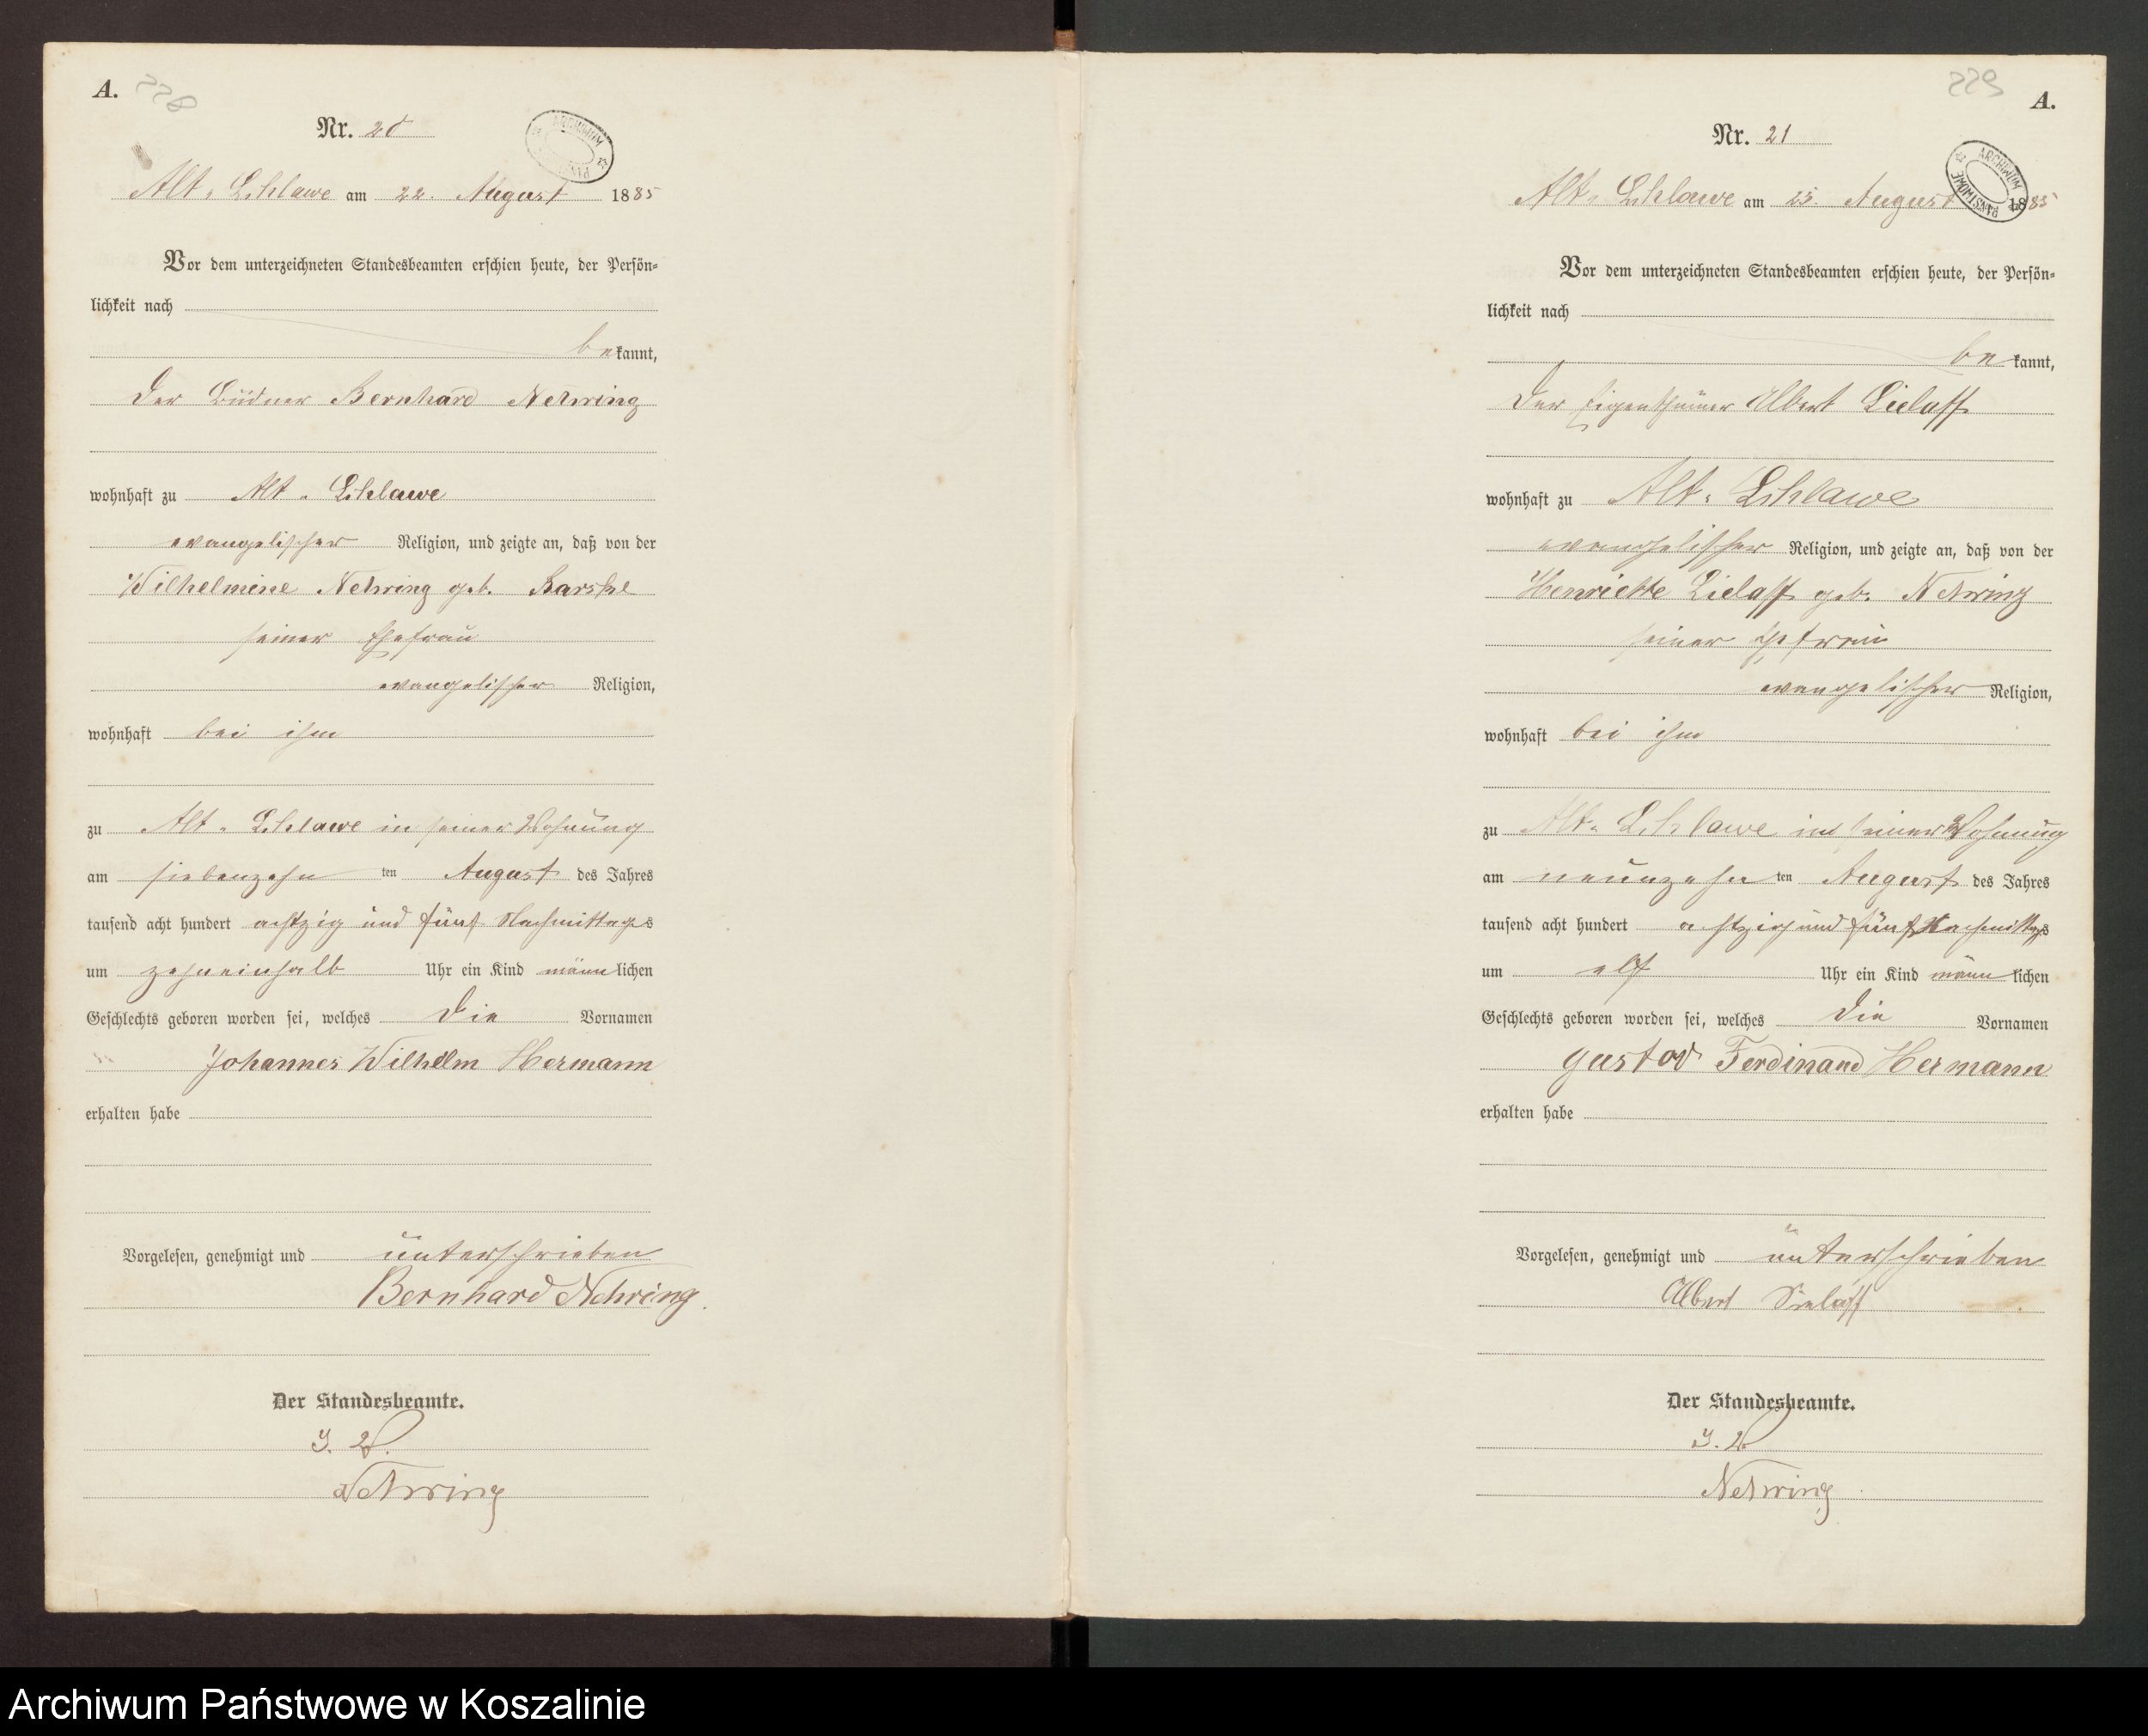 A.
228
Nr. 20
Alt-Schlawe am 22. August 1885
Vor dem unterzeichneten Standesbeamten erschien heute, der Persön-
lichkeit nach
bekannt,
Der Büdner Bernhard Nehring
wohnhaft zu Alt-Schlawe
evangelischer Religion, und zeigte an, daß von der
Wilhelmine Nehring geb.
seiner Ehefrau
evangelischer Religion,
wohnhaft bei ihm
zu Alt-Schlawe in seiner Wohnung
am siebenzehnten August des Jahres
tausend acht hundert achtzig und fünf Nachmittags
um zehneinhalb Uhr ein Kind männlichen
Geschlechts geboren worden sei, welches die Vornamen
Johannes Wilhelm Hermann
erhalten habe
Vorgelesen, genehmigt und unterschrieben
Bernhard Nehring.
Der Standesbeamte.
J. V.
Nehring
229
A.
Nr. 21
Alt-Schlawe am 25. August 1885
ARCHIWUM PAŃSTWOWE
Vor dem unterzeichneten Standesbeamten erschien heute, der Persön-
lichkeit nach
bekannt,
Der Eigenthümer Albert Sielaff
wohnhaft zu Alt-Schlawe
evangelischer Religion, und zeigte an, daß von der
Henriette Sielaff geb. Nehring
seiner Ehefrau
evangelischer Religion,
wohnhaft bei ihm
zu Alt-Schlawe in seiner Wohnung
am neunzehnten August des Jahres
tausend acht hundert achtzig und fünf Nachmittgs
um elf Uhr ein Kind männlichen
Geschlechts geboren worden sei, welches die Vornamen
Gustav Ferdinand Hermann
erhalten habe
Vorgelesen, genehmigt und unterschrieben
Albert Sielaff
Der Standesbeamte.
J. V
Nehring
Archiwum Państwowe w Koszalinie